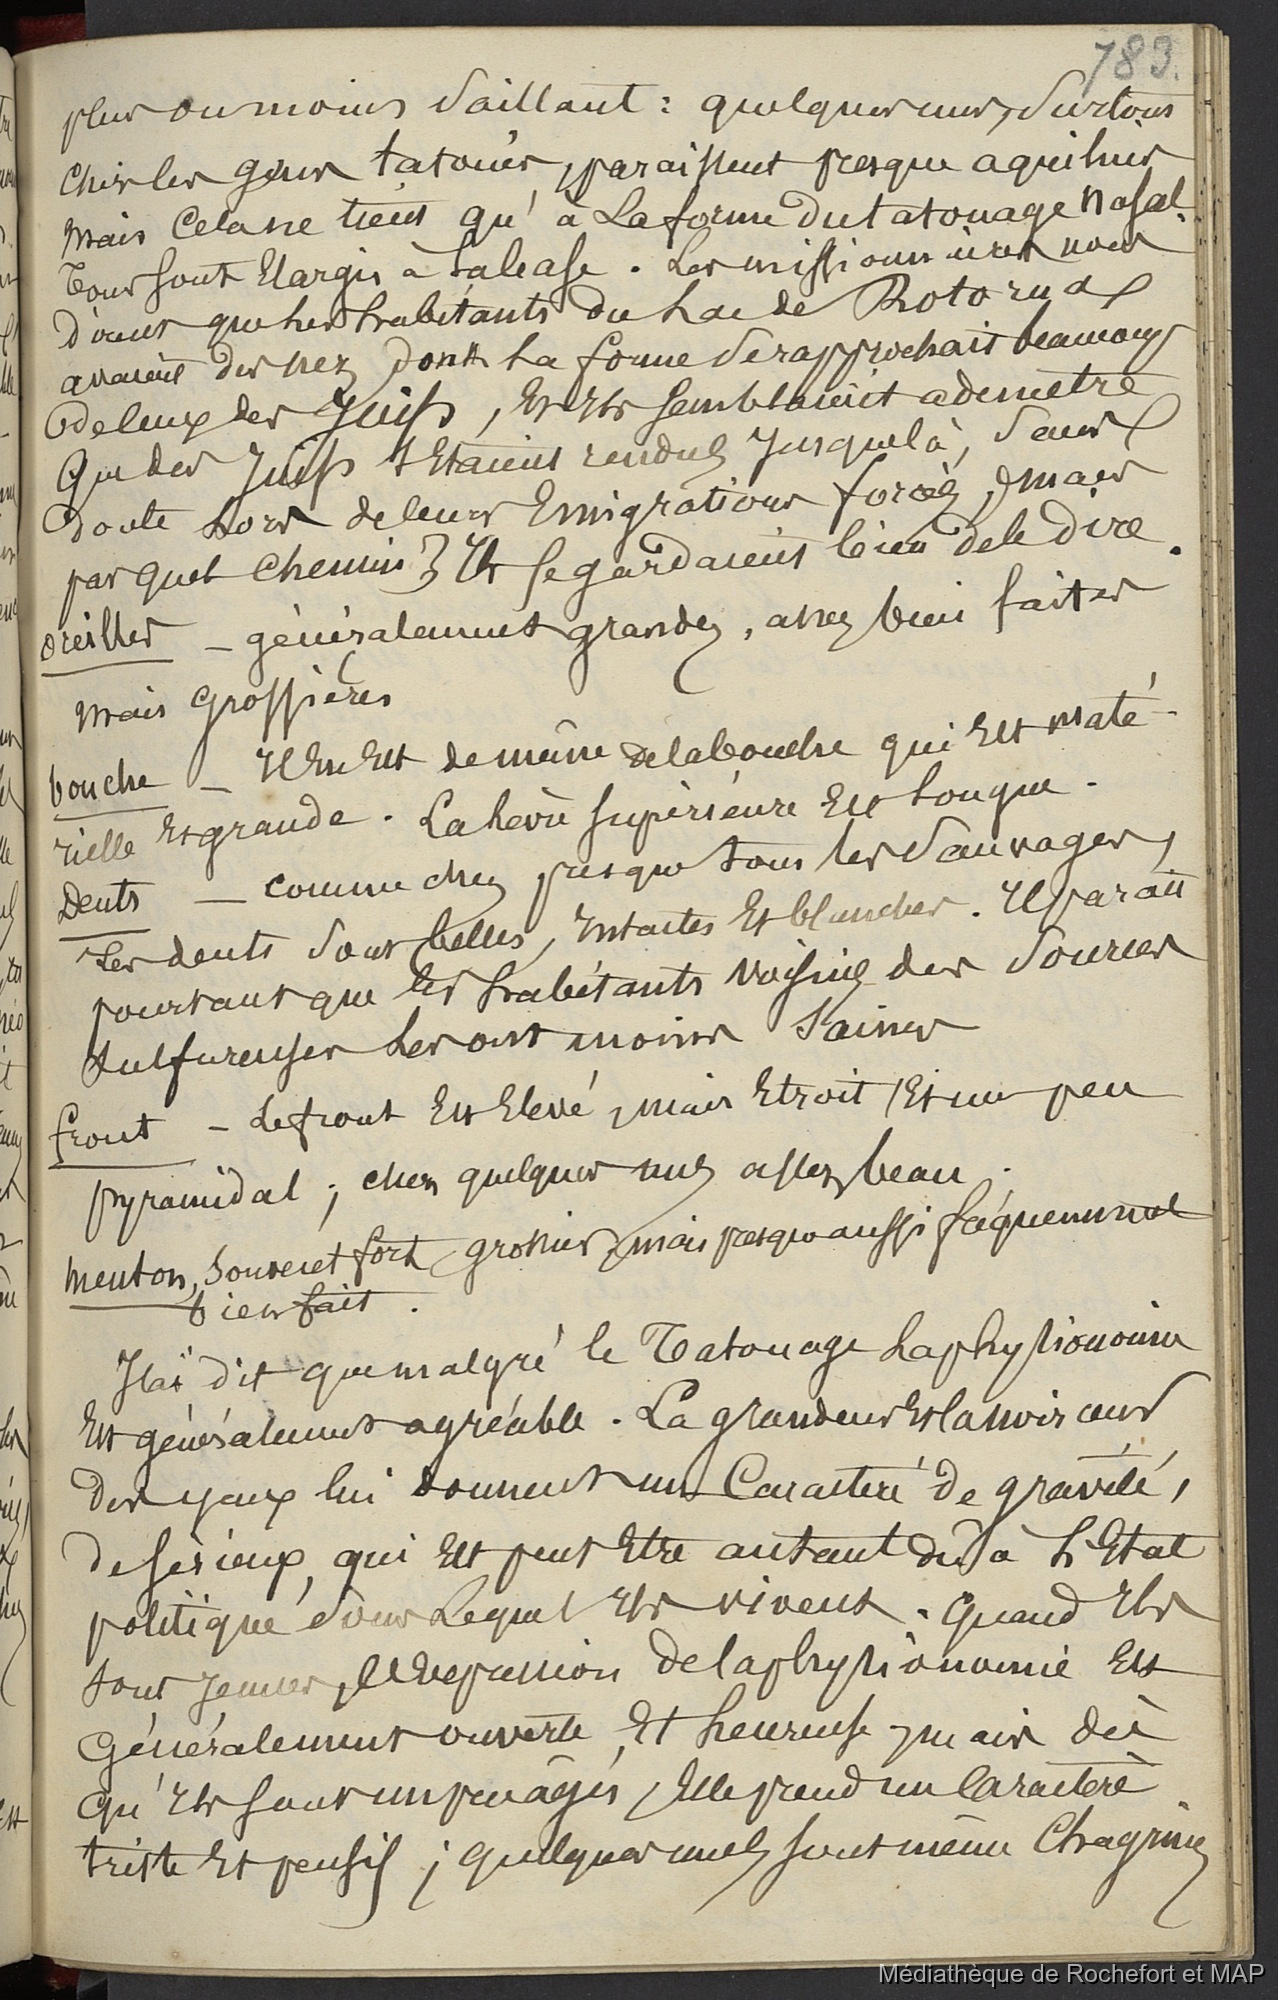 783.
plus ou moins saillant : quelques uns, surtout
chez les gens tatoués, paraissent presque aquilins
mais cela ne tient qu'à la forme du tatouage nasal.
Tous sont élargis à la base. Les missionnaires nous
dirent que les habitants du lac de Rotorua
avaient des nez dont la forme se rapprochait beaucoup
de ceux des Juifs, et ils semblaient ademettre
que des Juifs s'étaient rendus jusque là, sans
doute lors de leurs émigrations forcés, mais
par quel chemin? Ils se gardaient bien de le dire.
oreilles – généralement grandes, assez bien faites
mais grossières
bouche – Il en est de même de la bouche qui est maté-
rielle et grande. La lèvre supérieure est longue.
Dents — comme chez presque tous les sauvages,
les dents sont belles, intactes et blanches. Il parait
pourtant que les habitants voisins des sources
sulfureuses les ont moins saines
front – le front est élevé, mais étroit et un peu
pyramidal ; chez quelques uns assez beau.
menton, souvent fort grossier, mais presque aussi fréquemment
bien fait.
J'ai dit que malgré le Tatouage la physionomie
est généralement agréable. La grandeur et la noirceur
des yeux lui donnent un caractère de gravité,
de sérieux, qui est peut être autant dû à l'état
politique dans lequel ils vivent. Quand ils
sont jeunes, l'expression de la physionomie est
généralement ouverte et heureuse, mais dès
qu'ils sont un peu âgés, elle prend un caractère
triste et pensif ; quelques uns sont même chagrins
Médiathèque de Rochefort et MAP